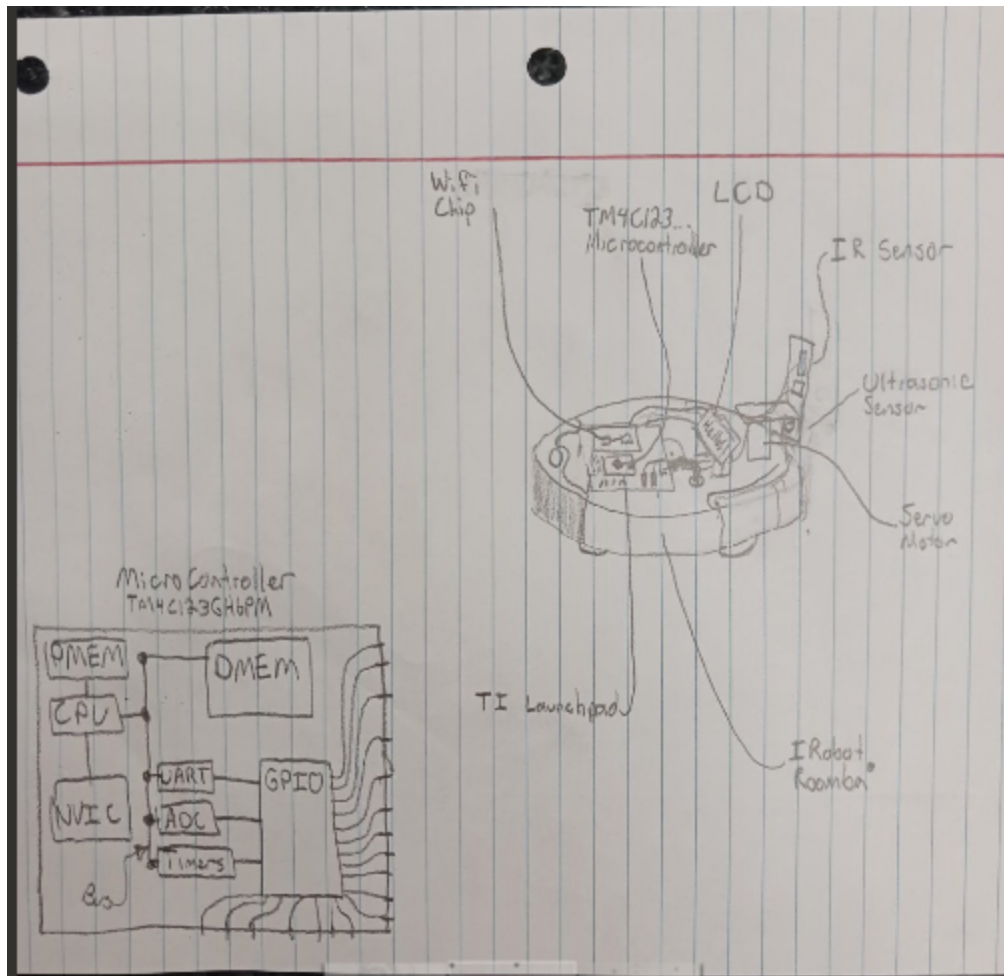 Wifi
Chip
TM4C123...
Microcontroller
LCD
IR Sensor
Ultrasonic
Sensor
Servo
Motor
TI Launchpad
IRobot
Roomba
Micro Controller
TM4C123GH6PM
PMEM
DMEM
CPU
UART
GPIO
NVIC
ADC
Timers
Bus